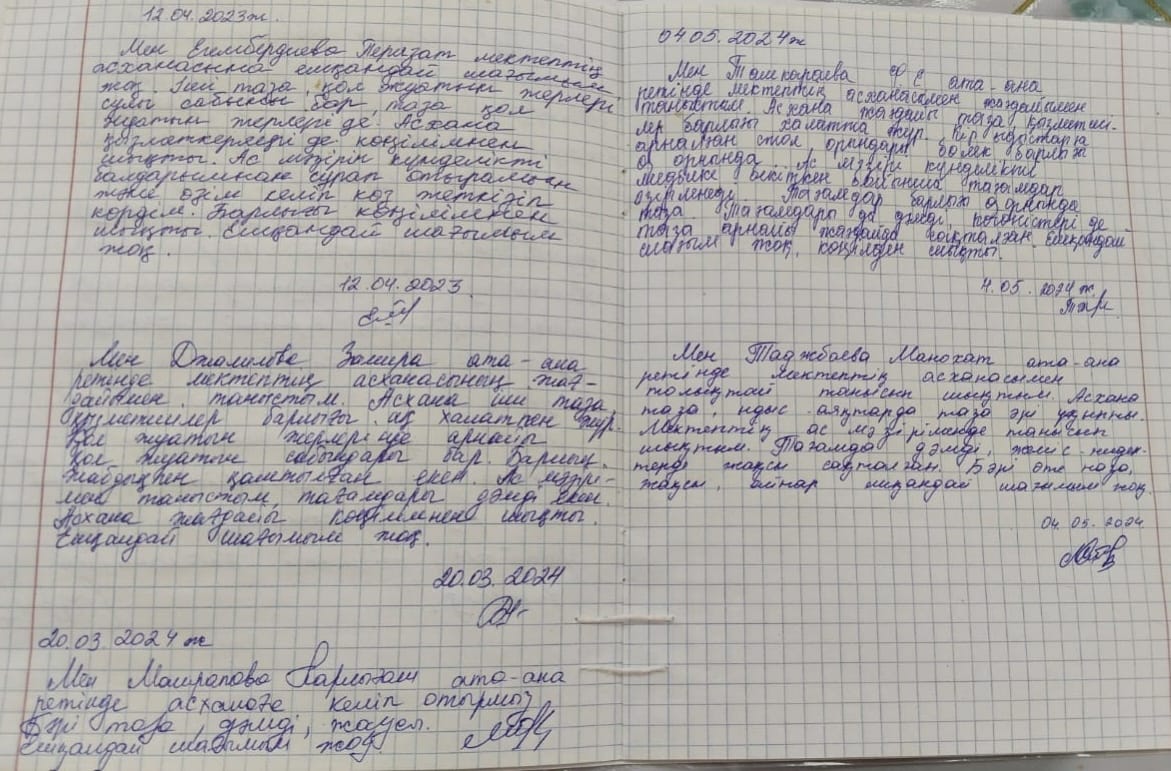 12.04.2023ж.
Мен Егембердиева Перизат мектептің
асханасына ешқандай шағымым
жоқ. Іші таза, қол жуатын жерлері,
сулы сабыны бар, таза қол
жуатын жерлері де. Асхана
қызметкерлері де көңілімнен
шықты. Ас мәзірін күнделікті
балдарымнан сұрап отырамын
және өзім келіп көз жеткізіп
көрдім. Барлығы көңілімнен
шықты. Ешқандай шағымым
жоқ.
12.04.2023
Мен Джалилова Замира ата-ана
ретінде мектептің асханасының жағ-
дайымен таныстым. Асхана іші таза,
қызметшілер барлығы ақ халатпен жүр.
Қол жуатын жерлерінде арнайы
қол жуатын сабындары бар. Барлық
жабдықпен қамтылған екен. Ас мәзірі-
мен таныстым тағамдары дәмді екен.
Асхана жағдайы көңілімнен шықты.
Ешқандай шағымым жоқ.
20.03.2024
20.03.2024 ж
Мен Машрапова Қарлығаш ата-ана
ретінде асханаға келіп отырмыз
Бәрі таза, дәмді, жақсы.
Ешқандай шағымым жоқ.
04.05.2024ж
Мен Ташкараева Ф Е ата-ана
ретінде мектептің асханасымен жағдайымен
таныстым. Асхана жағдайы таза қызметші-
лер барлығы халатта жүр. Кір ыдыстарға
арналған стол орындары бөлек барлығы
өз орнында. Ас мәзірі күнделікті
медбике бекіткен бойынша тағамдар
әзірленеді. Тағамдар барлығы өз орнында
таза. Тағамдары да дәмді, көкөністері де
таза арнайы жағдайда сақталған. Ешқандай
шағым жоқ, көңілден шықты.
4.05.2024 ж.
Мен Таджбаева Манохат ата-ана
ретінде мектептің асханасымен
толықтай танысып шықтым. Асхана
таза, ыдыс-аяқтарда таза әрі ұқыпты.
Мектептің ас мәзірімende танысып
шықтым. Тағамда дәмді, жеміс-жидек-
терді жақсы сақталған. Бәрі өте таза,
жақсы, ешқандай шағымым жоқ.
04.05.2024